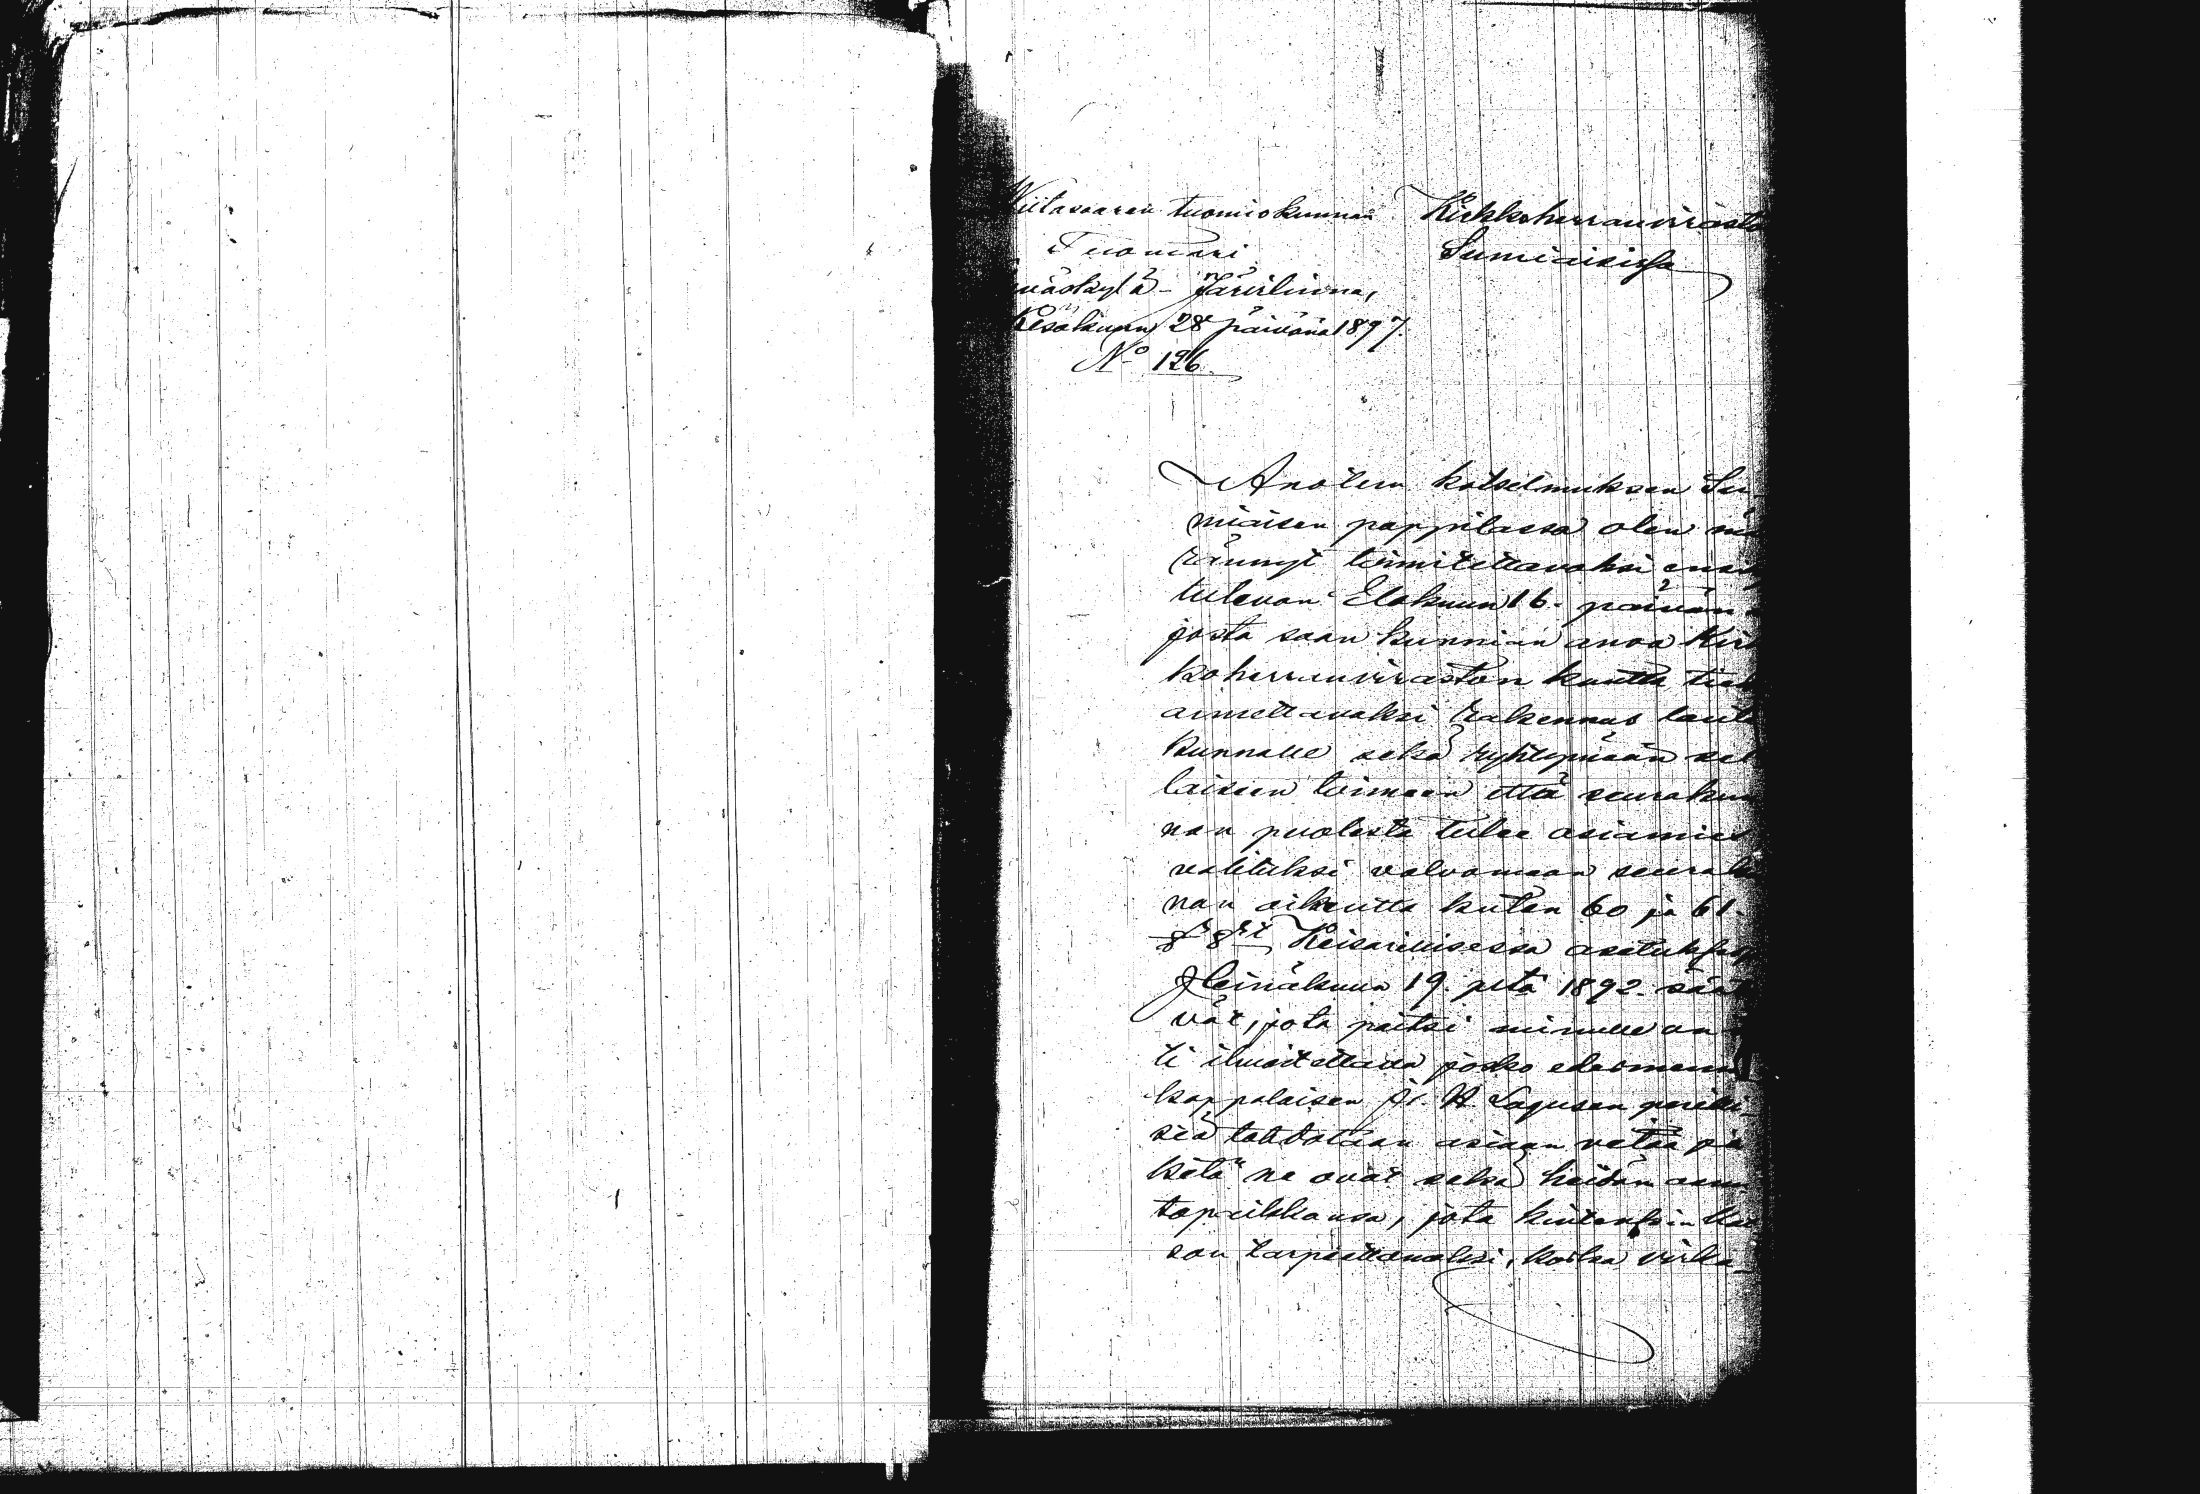 Wiitasaaren tuomiokunnan
Tuomari
Jyväskylä - Järvilinna,
Kesäkuun 28 päivänä 1897.
No 126.
Kirkkoherranvirasto
Sumiaisissa
Anotun katselmuksen Su-
miaisen pappilassa olen mää
rännyt toimitettavaksi ensi
tulevan Elokuun 16. päivänä
josta saan kunnian anoa Kirk
koherranviraston kautta tied
annettavaksi rakennus lauta
kunnalle sekä ryhtymään sel
laiseen toimeen että seurakun
nan puolesta tulee asiamies
valituksi valvomaan seurakun
nan oikeutta kuten 60 ja 61.
§ §:t Keisarillisessa asetuksessa
Heinäkuun 19. p:tä 1892. sää
vät, jota paitsi minulle on
ti ilmoitettava josko edesmenn
kappalaisen Fr. A. Lagusen perilli
siä tahdotaan asiaan vetää ja
ketä ne ovat sekä heidän asun
topaikkansa, jota kuitenkin
son tarpeettomaksi, koska virka-